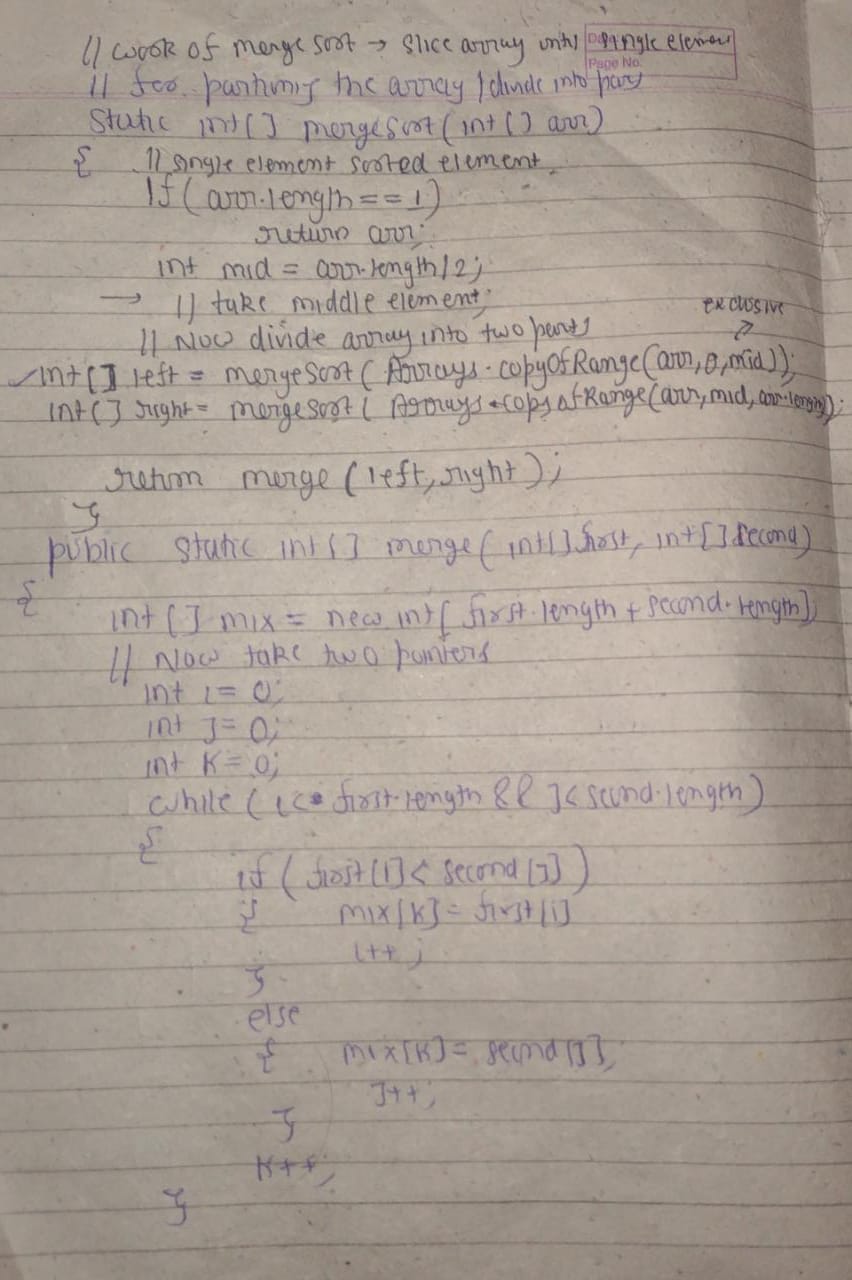 // work of merge sort → slice array until single element
Page No.
// for partining the array / divide into part
static int[] mergeSort(int[] arr)
{ // single element sorted element.
If(arr.length==1)
return arr;
int mid = arr.length/2;
→ // take middle element;
exclusive
// Now divide array into two parts
int[] left = mergeSort( Arrays.copyOfRange(arr,0,mid));
int[] right = mergeSort( Arrays.copyOfRange(arr,mid,arr.length));
return merge (left,right);
}
public static int[] merge( int[] first, int[] second)
{
int[] mix = new int[ first.length + second.length];
// Now take two pointers
int i=0;
int J=0;
int K=0;
while (i< first.length && J< second.length)
{
if ( first[i]< second[J])
{ mix[K]= first[i]
i++;
}
else
{ mix[K]= second[J];
J++;
}
K++;
}